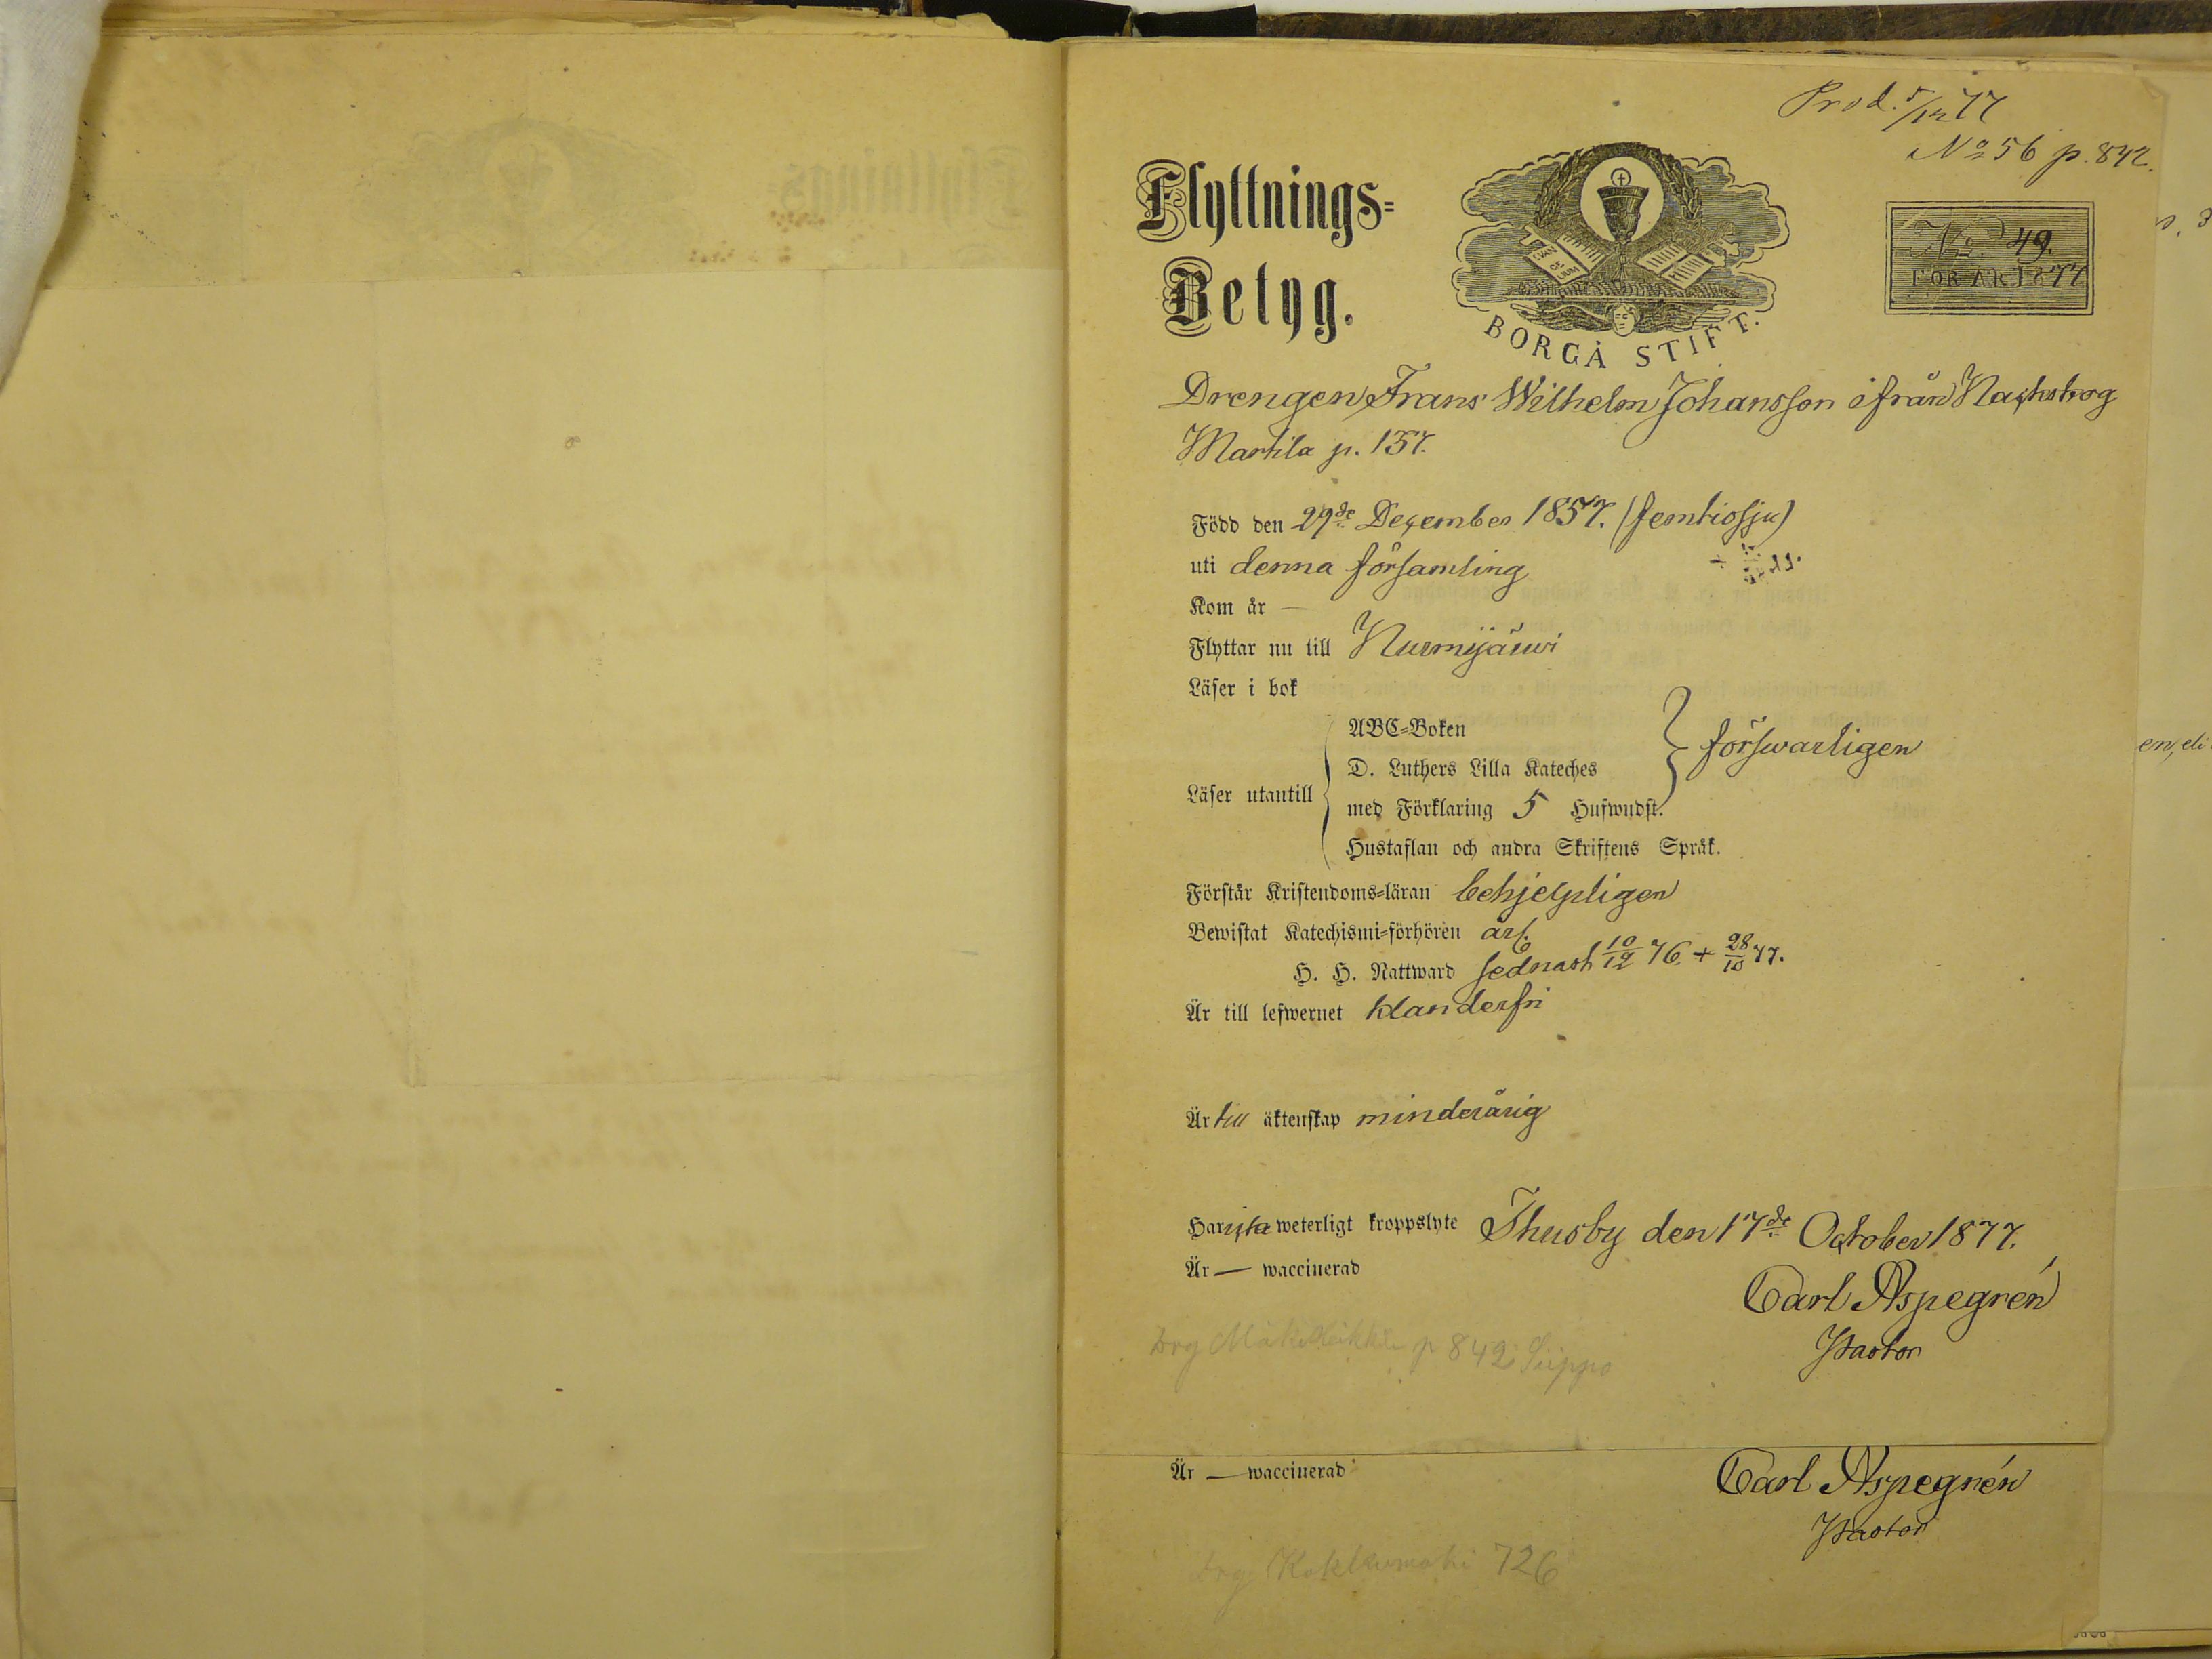 Prod. 5/12 77
No 56 p. 842.
Flyttnings=
Betyg.
EVAN
GE
LIUM
BORGÅ STIFT.
No 49.
FÖR ÅR 1877
Drengen Frans Wilhelm Johansson ifrån
Martila p. 157.
Född den 29de December 1857. (femtiosju)
uti denna församling
Kom år —
Flyttar nu till Nurmijärwi
Läser i bok
Läser utantill
ABC=Boken
D. Luthers Lilla Kateches
med Förklaring 5 Hufwudst.
Hustaflan och andra Skriftens Språk.
förswarligen
Förstår Kristendoms=läran behjelpligen
Bewistat Katechismi=förhören årl.
H. H. Nattward sednast 10/12 76 + 28/10 77.
Är till lefwernet klanderfri
Är till äktenskap minderårig
Har icke weterligt kroppslyte Thusby den 17de October 1877.
Är — waccinerad
Carl Aspegrén
Pastor
Drg p 842 Seppo
Är — waccinerad
Carl Aspegrén
Pastor
Drg 726